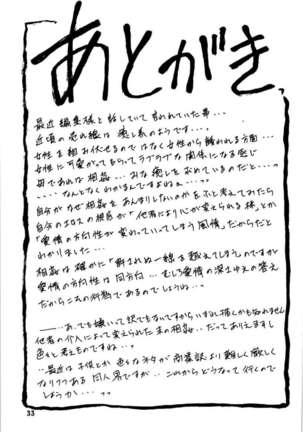 あとがき
最近編集様と話していて言われていた事...
近頃の売れ線は癒し系のようです...。
女性を組み伏せるではなく女性から襲われる方面...
女性に可愛がってもらってラブラブな関係になる感じ
母であれば相姦...みな癒しを求めているのだと...。
...なんとなくわかるんですよねぇ...。
自分がなぜ相姦をあんまりしないのかをふと考えてみたら
自分のエロスの根底が「他者により心が変えられる様」とか
「愛情の方向性が変わっていってしまう風情」だからだと
わかりました...
相姦は確かに「許されぬ」線を越えてしまうのですが
愛情の方向性は同方向...むしろ愛情の深さゆえの答え
だからこその灼熱であるのでしょうね...。
...あ、でも嫌いって訳でもないですからいずれ描くかも知れません
他者の介入によって変えられた末の相姦...だってありえますし
色々と考えものですね...。
...最近は子供とか色々なネタが商業誌より難しく厳しく
なりつつある同人界ですが...これからどうなって行くので
しょうか...。
33